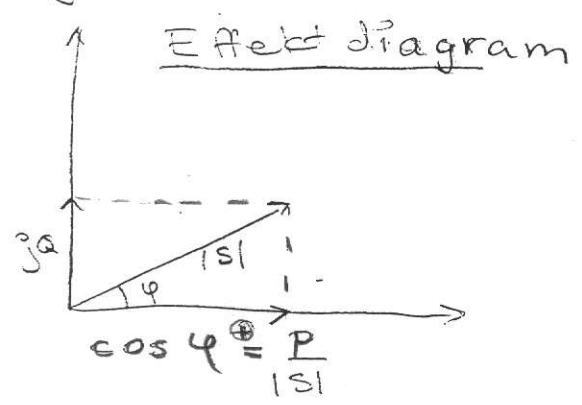 Effekt diagram
jQ
|S|
φ
cos φ ⊕= P
|S|